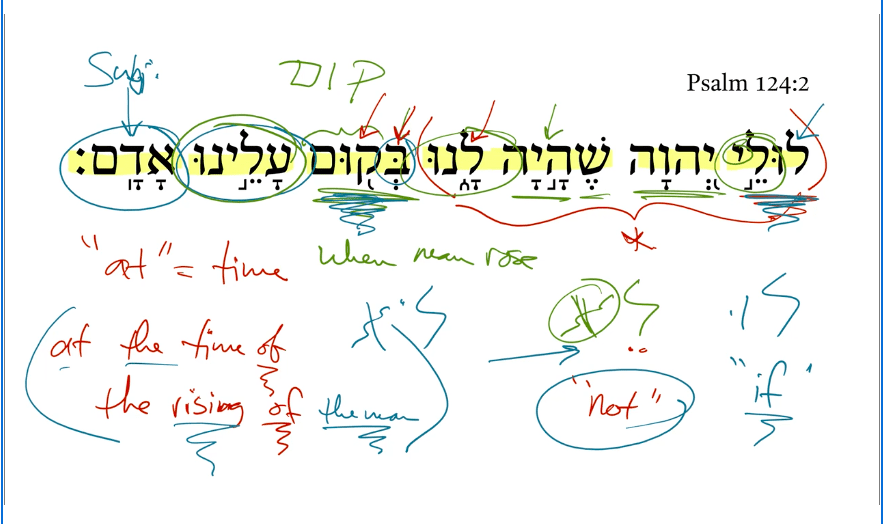 Subj. DIP
Psalm 124:2
לוּלֵ֣י יְ֭הוָה שֶׁהָ֣יָה לָ֑נוּ בְּק֖וּם עָלֵ֣ינוּ אָדָֽם׃
"at" = time when man rose
לא לא לו
at the time of
"not" "if"
the rising of the man